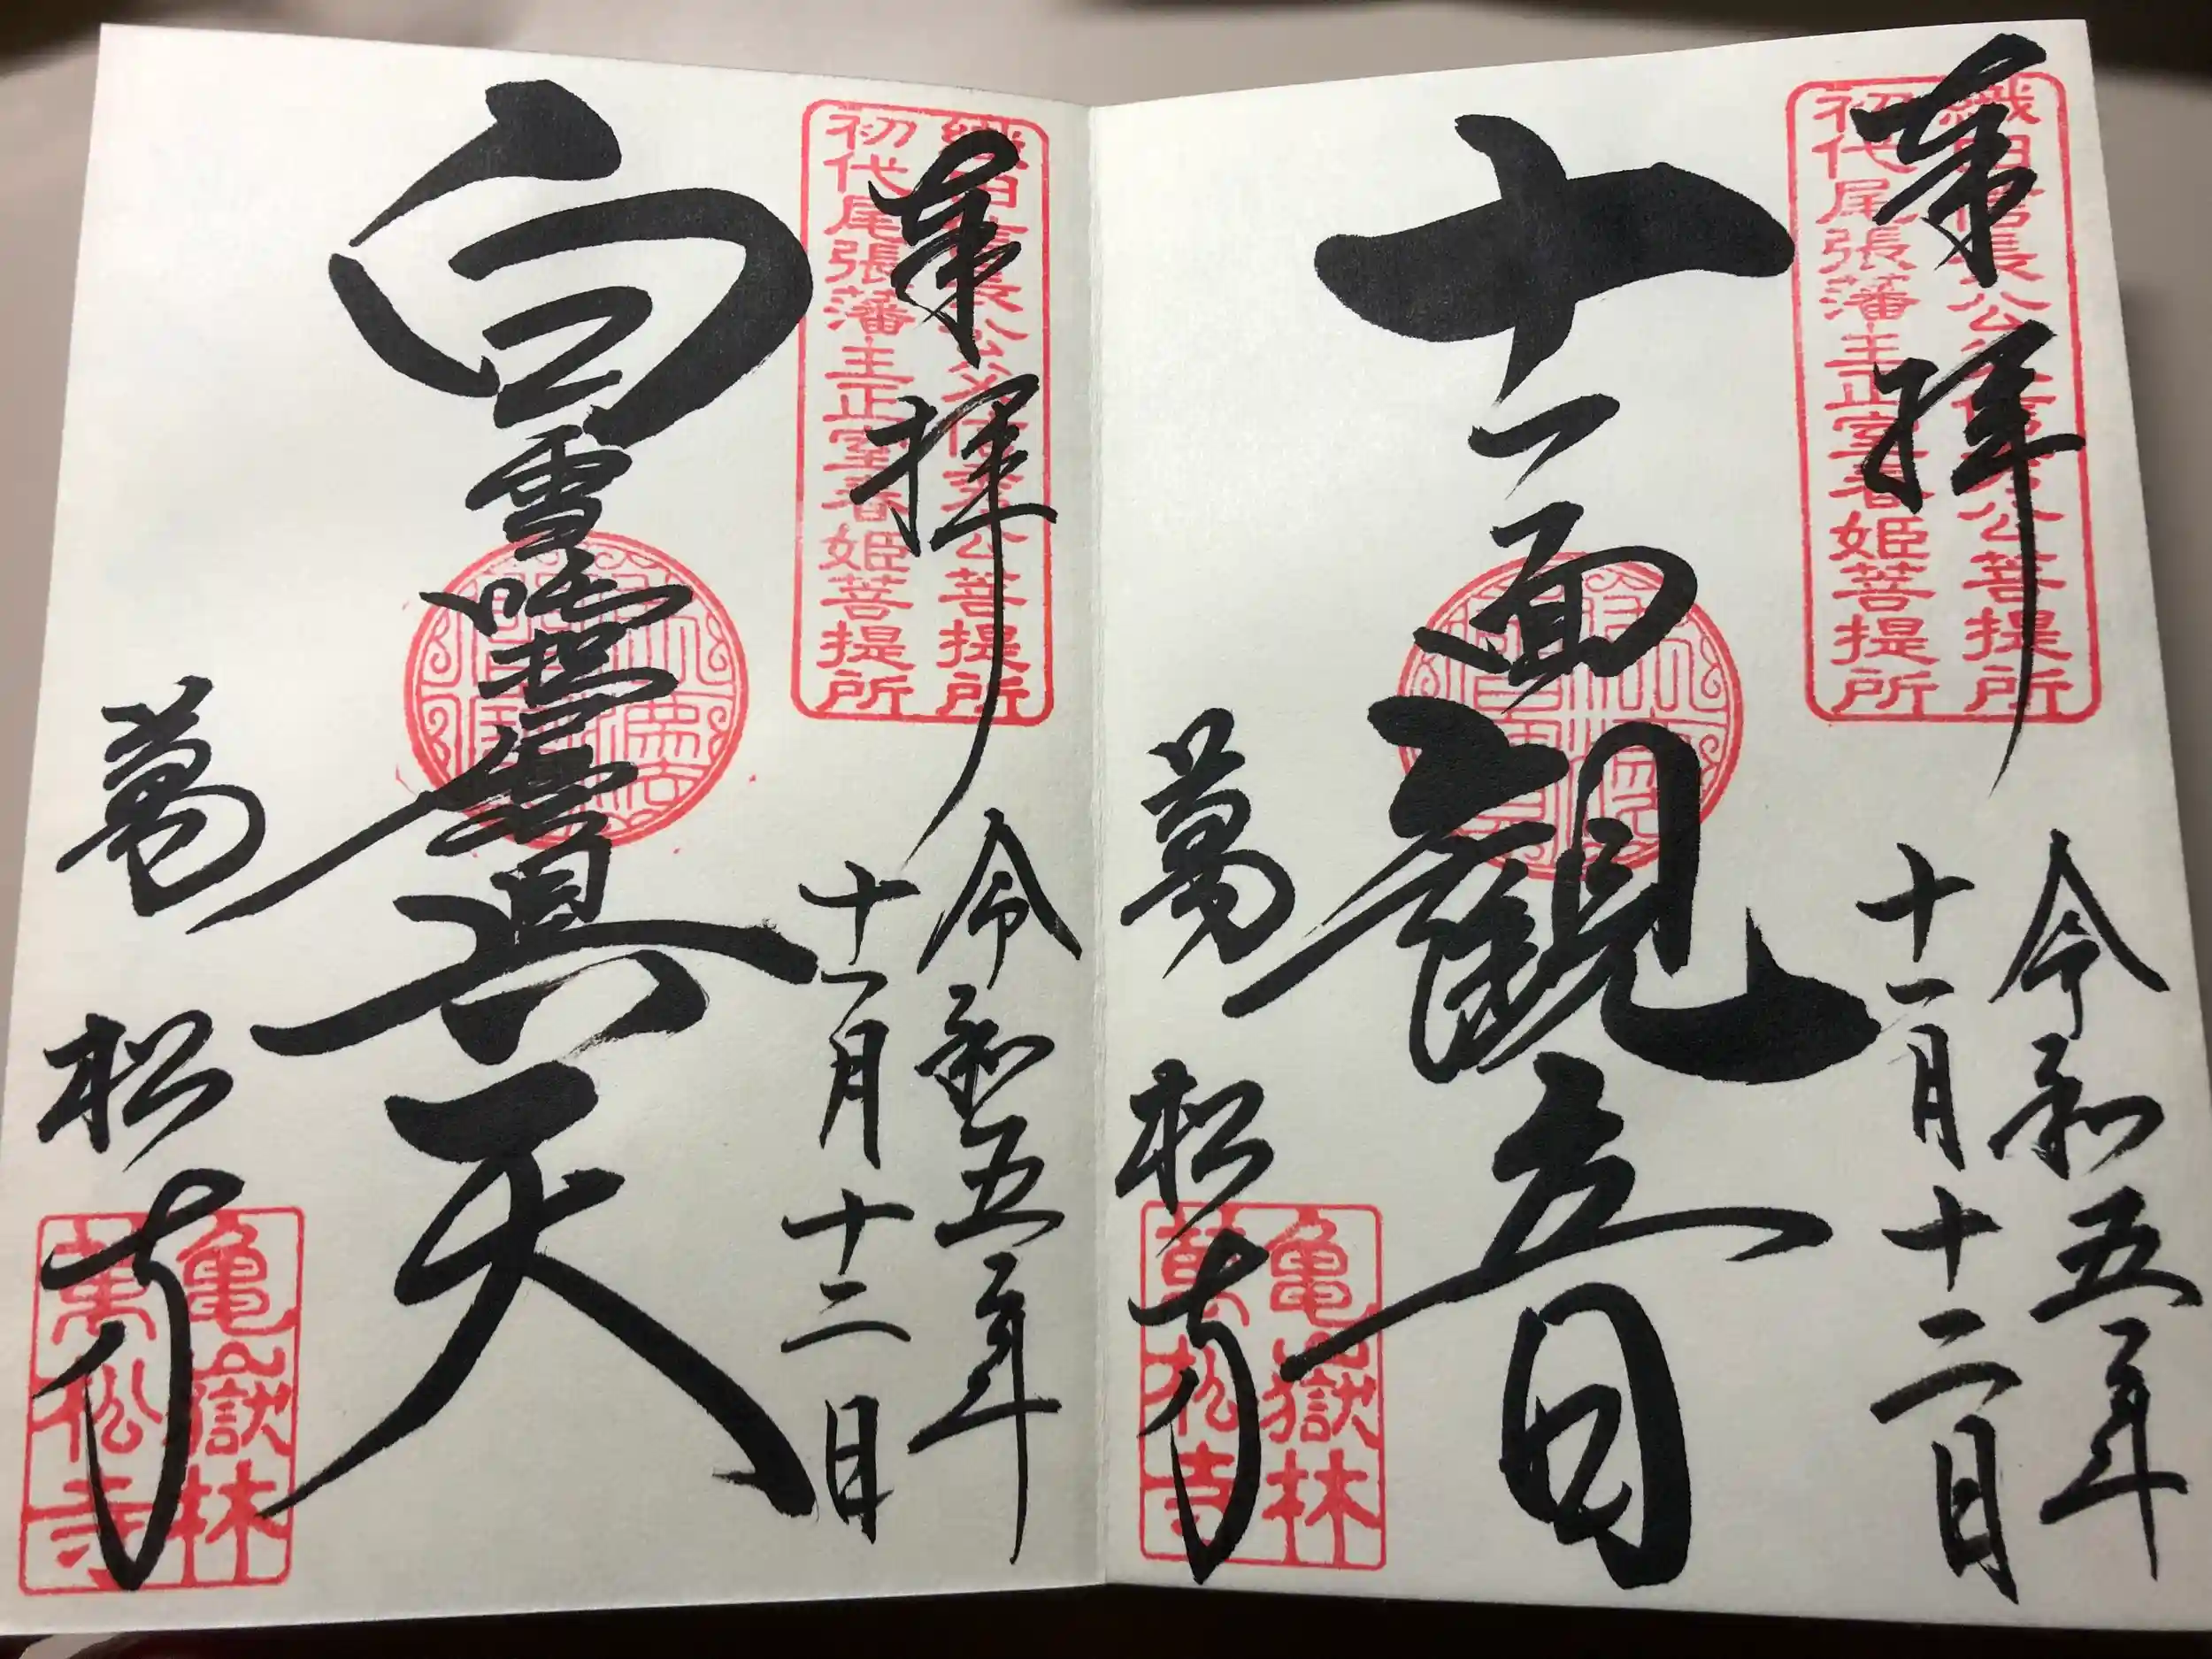 奉拝
織田信長公父信秀公菩提所
初代尾張藩主正室春姫菩提所
令和五年
十一月十二日
十一面観立日
萬松寺
亀嶽林
萬松寺
奉拝
織田信長公父信秀公菩提所
初代尾張藩主正室春姫菩提所
令和五年
十一月十二日
白雪吒枳尼真天
萬松寺
亀嶽林
萬松寺